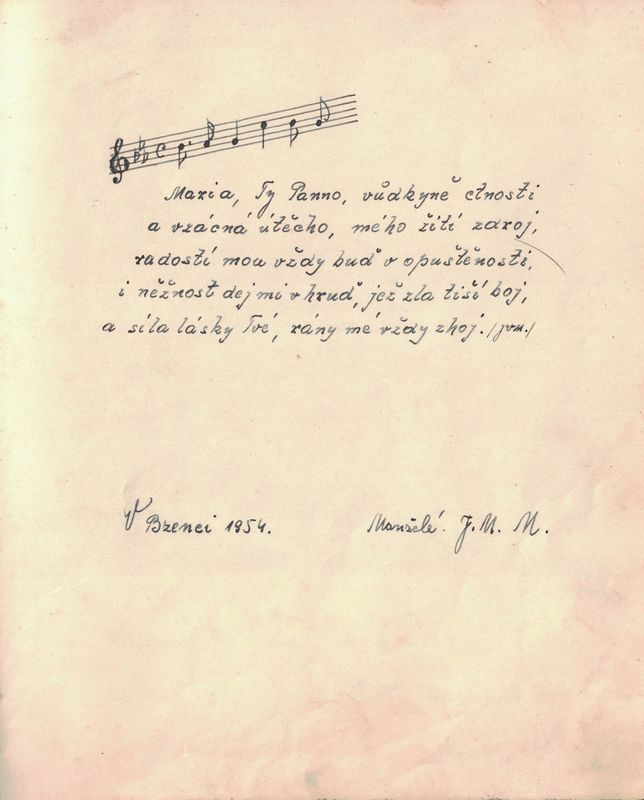 Maria, Ty Panno, vůdkyně ctnosti
a vzácná útěcho, mého žití zdroj,
radostí mou vždy buď v opuštěnosti,
i něžnost dej mi v hruď, jež zla tiší boj,
a síla lásky Tvé, rány mé vždy zhoj. /jvm./
V Bzenci 1954.
Manželé J. M. M.